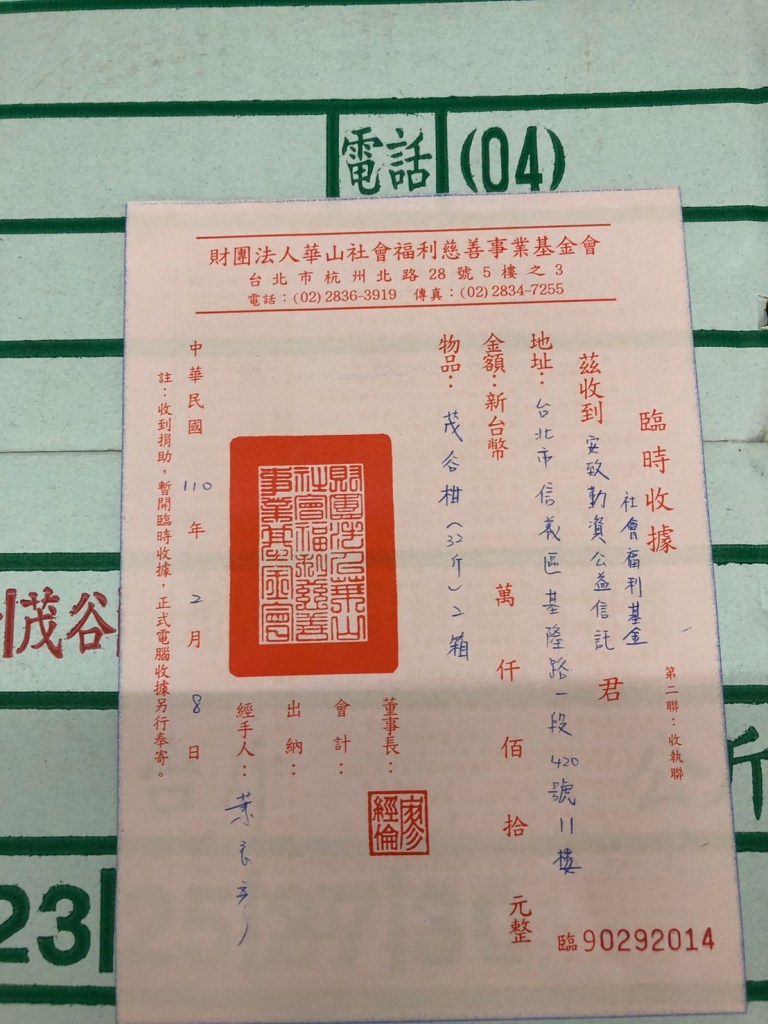 電話
(04)
財團法人華山社會福利慈善事業基金會
台北市杭州北路28號5樓之3
電話：(02)2836-3919 傳真：(02)2834-7255
臨時收據
社會福利基金
茲收到 安致勤資公益信託 君
地址：台北市信義區基隆路一段420號11樓
金額：新台幣 萬 仟 佰 拾 元整
物品：茂谷柑(32斤)2箱
董事長：
廖經倫
會計：
出納：
經手人：
財團法人華山
社會福利慈善
事業基金會
中華民國110年2月8日
註：收到捐助，暫開臨時收據，正式電腦收據另行奉寄。
第二聯：收執聯
臨90292014
茂谷
斤
23